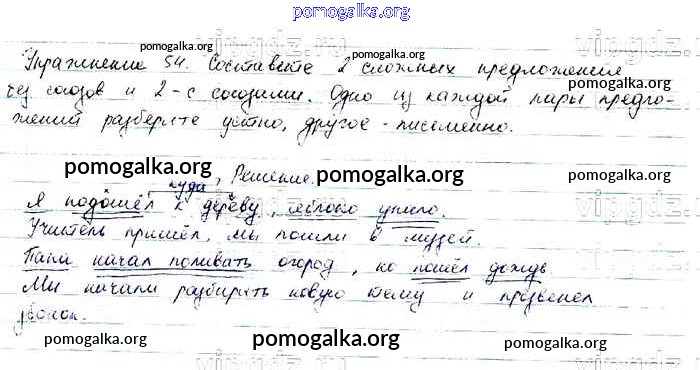 pomogalka.org
Упражнение 54. Составьте 2 сложных предложения
без союзов и 2 - с союзами. Одно из каждой пары предло-
жений разберите устно, другое - письменно.
pomogalka.org pomogalka.org pomogalka.org
pomogalka.org Решение. pomogalka.org pomogalka.org
куда
Я подошёл к дереву, яблоко упало.
Учитель пришёл, мы пошли в музей.
Папа начал поливать огород, но пошёл дождь
Мы начали разбирать новую тему и прозвенел
звонок.
pomogalka.org pomogalka.org pomogalka.org pomogalka.org
vipgdz.ru